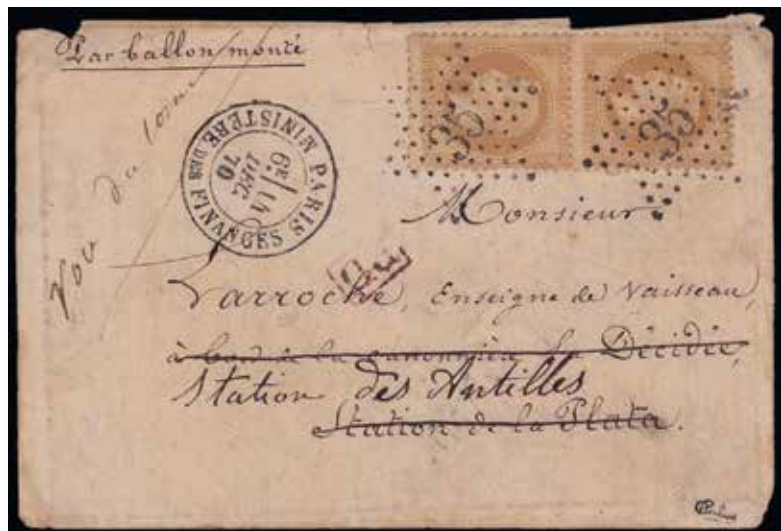 Par ballon monté
35 35
PARIS MINISTÈRE DES FINANCES
6E 14
DÉC
70
Monsieur
Larroche, Enseigne de Vaisseau,
à bord de la canonnière la Décidée,
Station des Antilles
Station de la Plata.